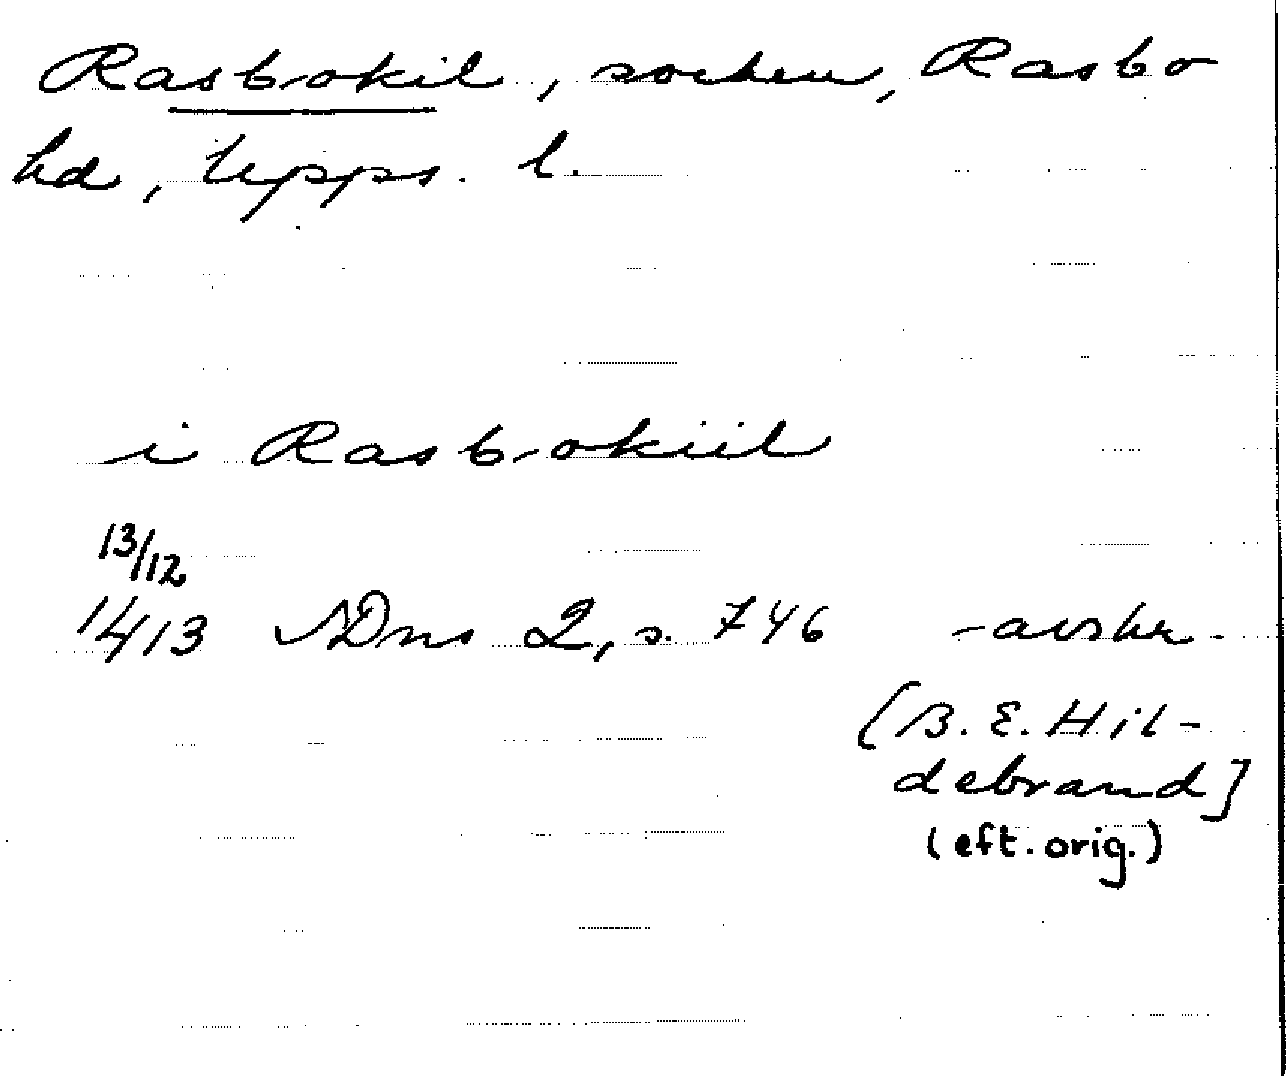 Rasbokil, socken, Rasbo
hd, Upps. l.
i Rasbokiil
13/12
1413 SDns 2, s. 746 - avskr.
[B. E. Hil-
debrand]
(eft. orig.)